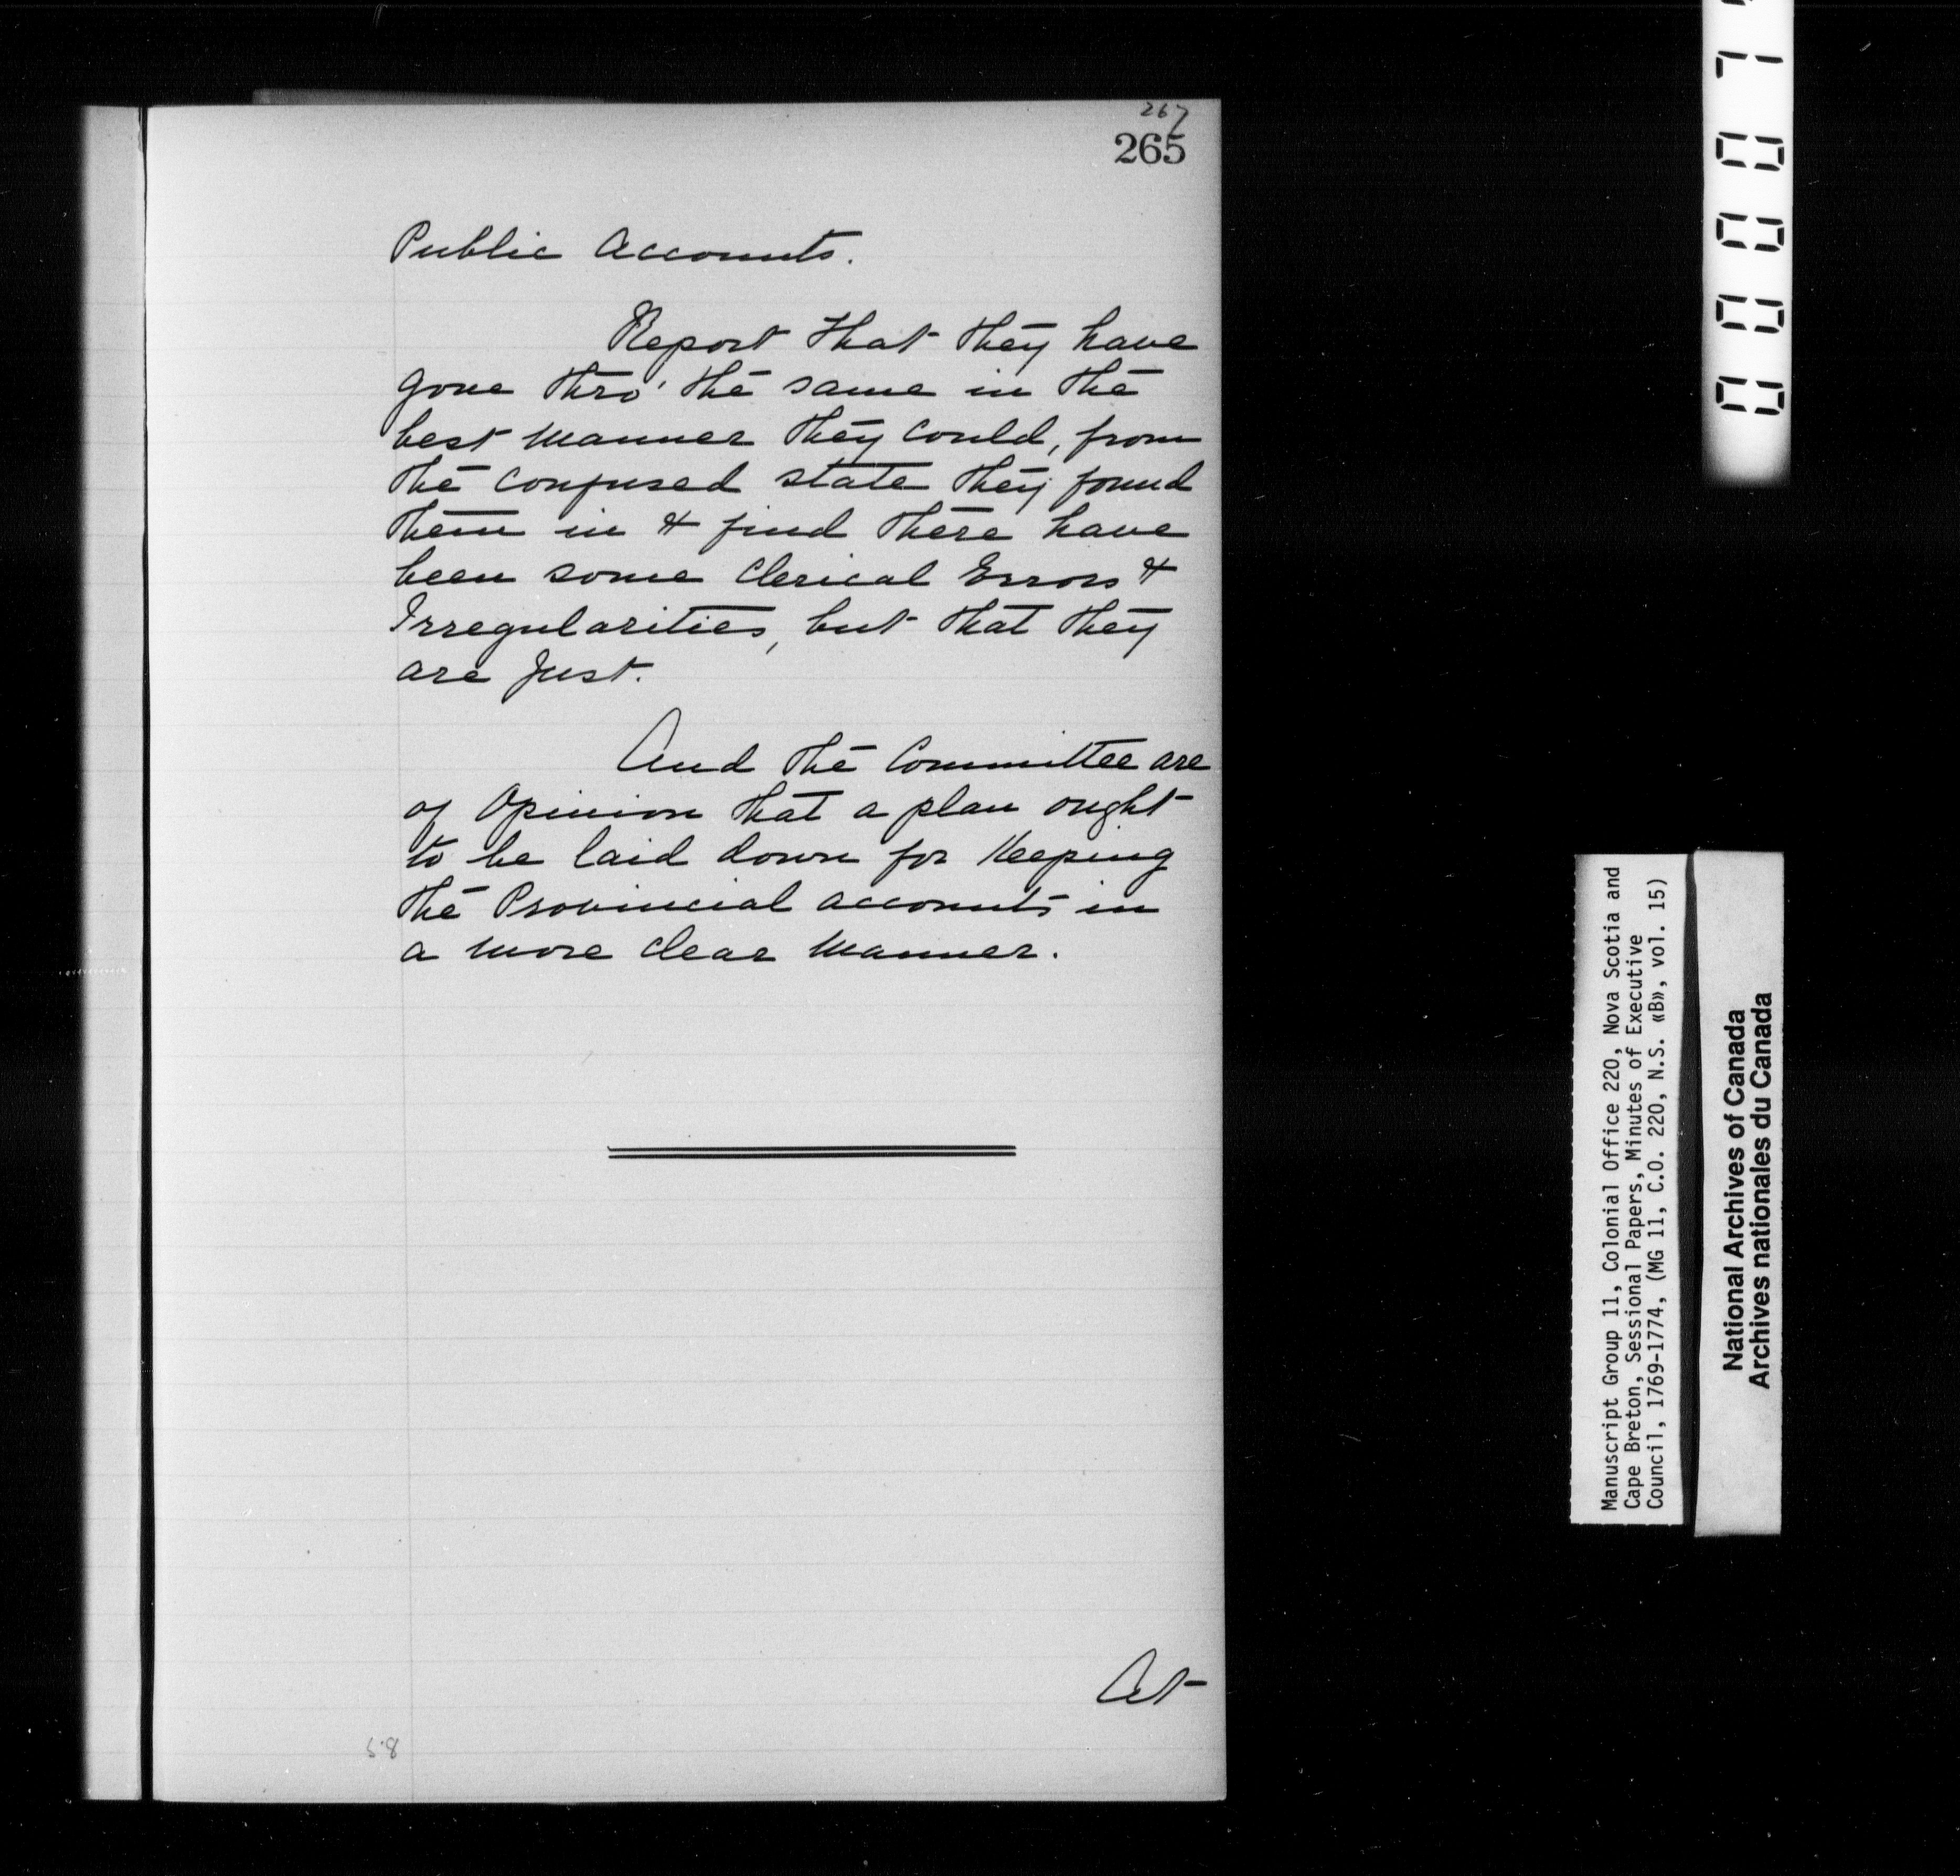 267
265
Public Accounts.
Report that they have
gone thro' the same in the
best manner they could, from
the confused state they found
them in & find there have
been some Clerical Errors &
Irregularities, but that they
are just.
And the Committee are
of Opinion that a plan ought
to be laid down for Keeping
the Provincial accounts in
a more clear manner.
At
Manuscript Group 11, Colonial Office 220, Nova Scotia and
Cape Breton, Sessional Papers, Minutes of Executive
Council, 1769-1774, (MG 11, C.O. 220, N.S. «B», vol. 15)
National Archives of Canada
Archives nationales du Canada